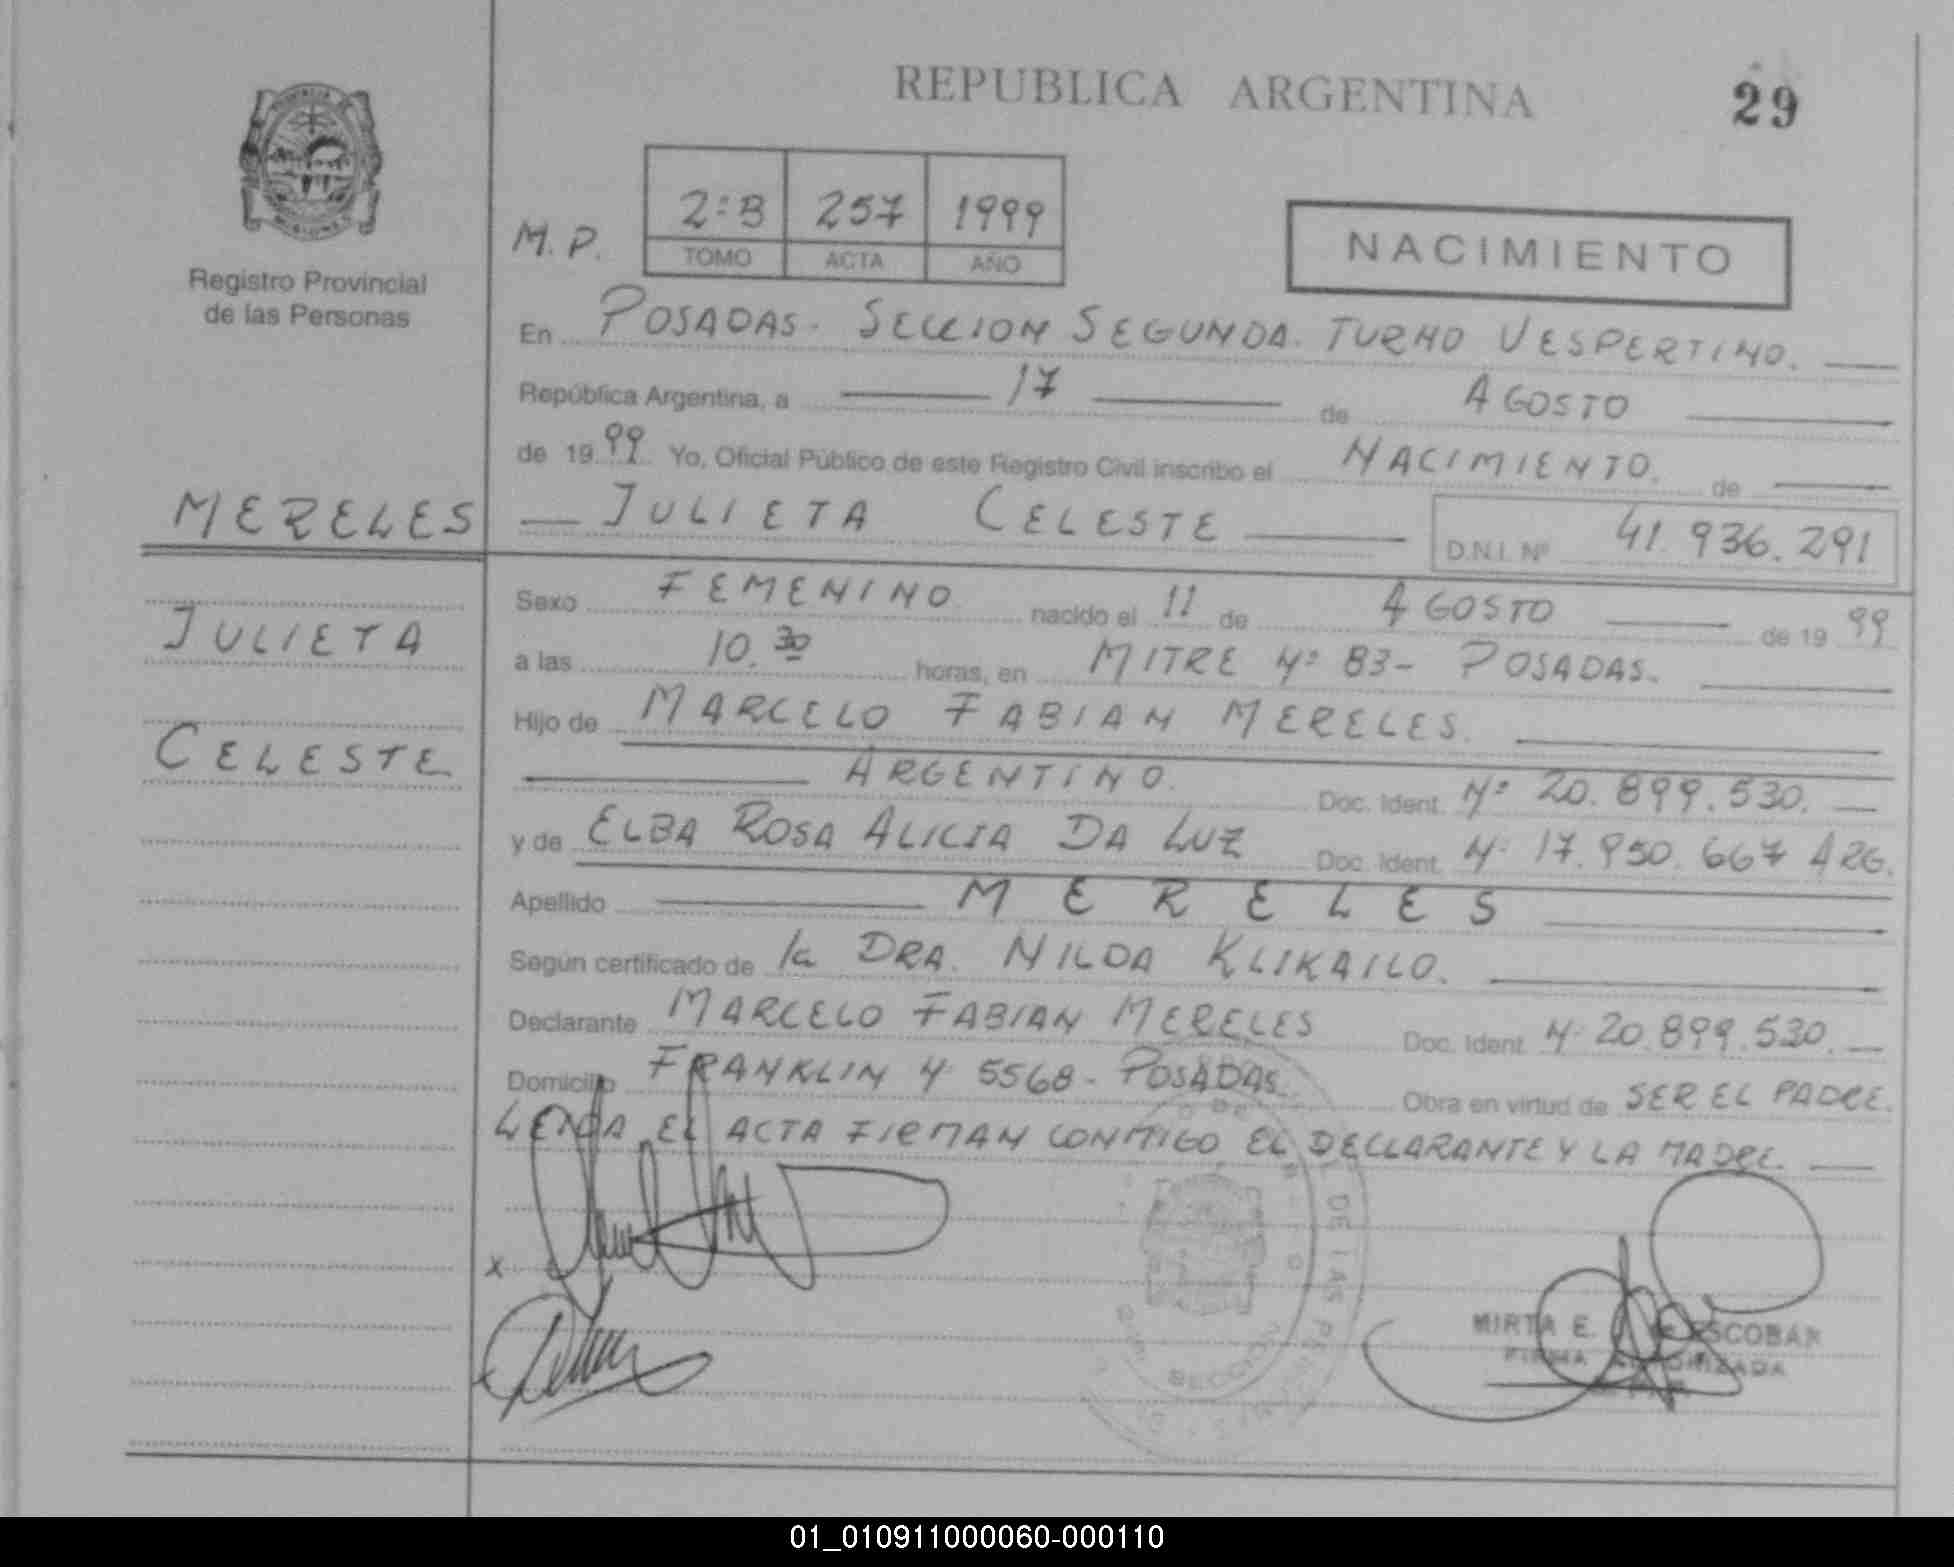 REPUBLICA ARGENTINA
29
PROVINCIA DE
MISIONES
Registro Provincial
de las Personas
M.P.
2:B 257 1999
TOMO ACTA AÑO
NACIMIENTO
En POSADAS. SECCION SEGUNDA. TURNO VESPERTINO.
República Argentina, a 17 de AGOSTO
de 1999 Yo, Oficial Público de este Registro Civil inscribo el NACIMIENTO. de
MERELES
JULIETA CELESTE D.N.I. Nº 41.936.291
JULIETA
CELESTE
Sexo FEMENINO nacido el 11 de AGOSTO de 1999
a las 10.30 horas, en MITRE Nº 83- POSADAS.
Hijo de MARCELO FABIAN MERELES.
ARGENTINO. Doc. Ident. Nº 20.899.530.
y de ELBA ROSA ALICIA DA LUZ Doc. Ident. Nº 17.950.667 ARG.
Apellido MERELES
Según certificado de la DRA. NILDA KLIKAILO.
Declarante MARCELO FABIAN MERELES Doc. Ident. Nº 20.899.530.
Domicilio FRANKLIN Nº 5568- POSADAS. Obra en virtud de SER EL PADRE.
LEIDA EL ACTA FIRMAN CONMIGO EL DECLARANTE Y LA MADRE.
x
DE LAS
MIRTA E. ESCOBAR
FIRMA AUTORIZADA
01_010911000060-000110